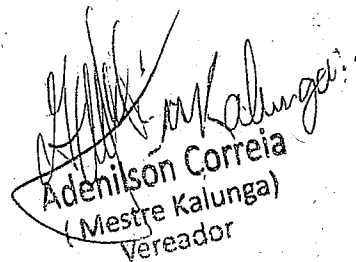 Kalunga
Adenilson Correia
(Mestre Kalunga)
Vereador